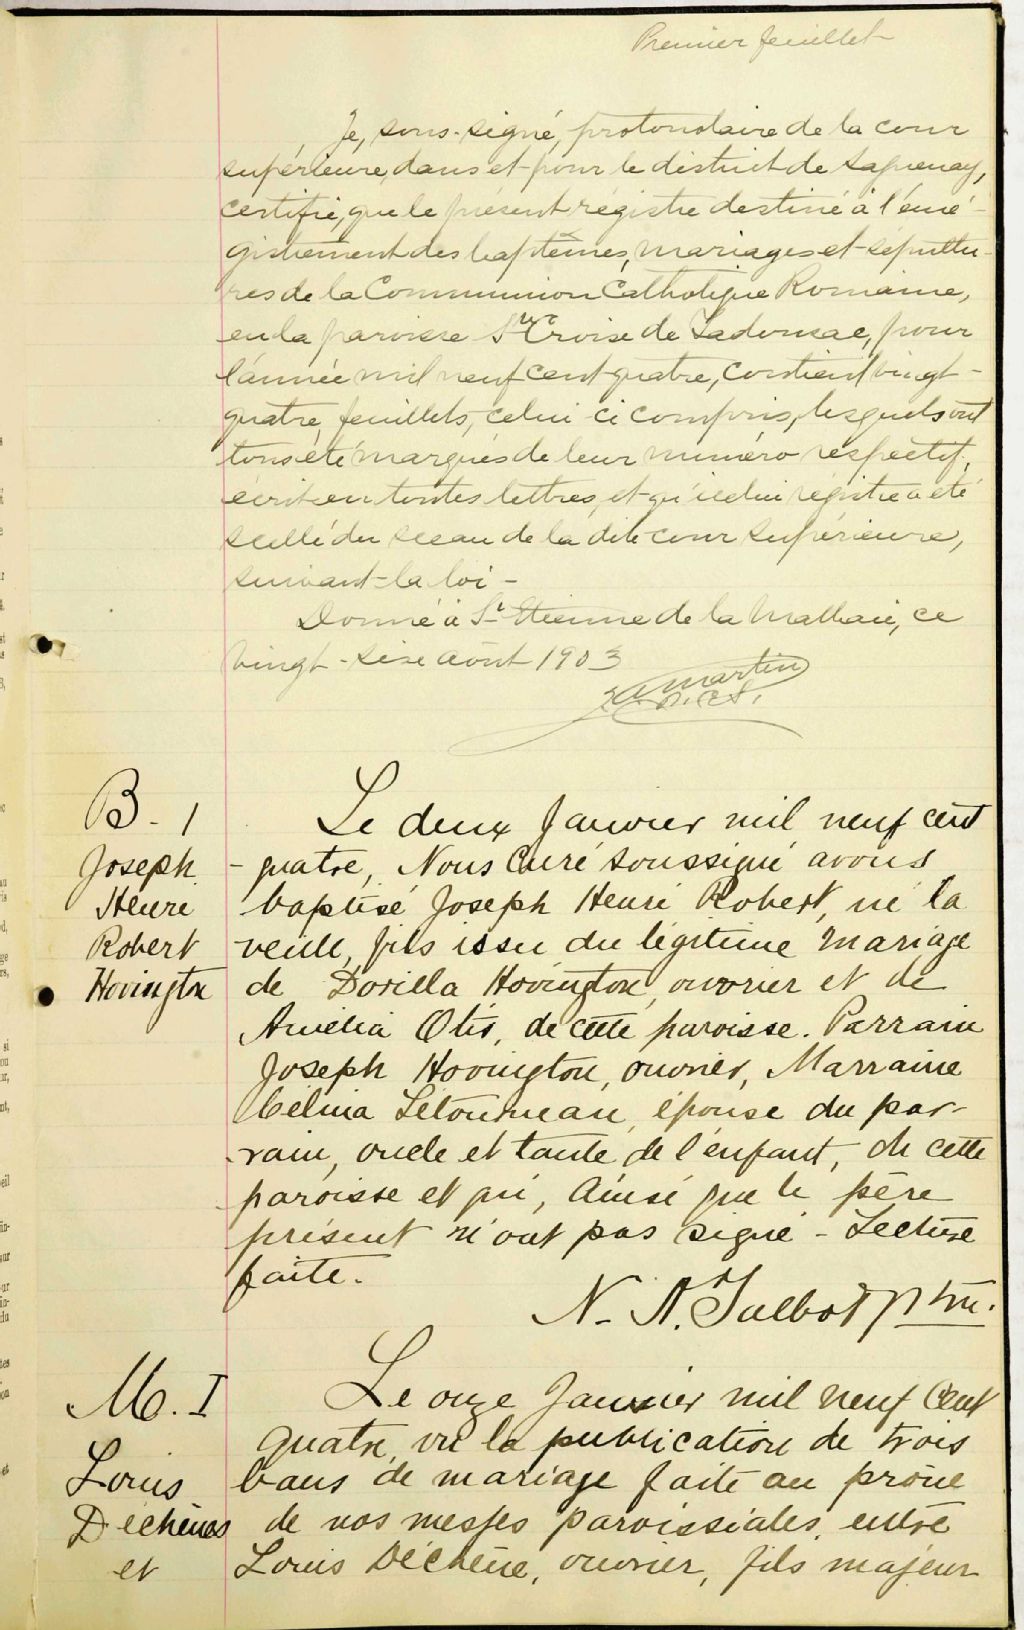 Premier feuillet
Je, sous-signé, protonotaire de la cour
supérieure, dans et pour le district de Saguenay,
certifie, que le présent régistre destiné à l'enré-
gistrement des baptêmes, mariages et sépultu-
res de la Communion Catholique Romaine,
en la paroisse Ste Croise de Tadousac, pour
l'année mil neuf cent quatre, contient vingt-
quatre feuillets, celui-ci compris, lesquels ont
tous été marqués de leur numéro respectif,
écrit en toutes lettres, et qu'icelui registre a été
scellé du sceau de la dite cour supérieure,
suivant la loi -
Donné à St Etienne de la Malbaie, ce
vingt-sise août 1903
Martin
P.C.S.
B - 1
Joseph
Henri
Robert
Hovington
Le deux Janvier mil neuf cent
- quatre, Nous Curé soussigné avons
baptisé Joseph Henri Robert, né la
veille, fils issu du légitime mariage
de Dorilla Hovington, ouvrier et de
Amélia Otis, de cette paroisse. Parrain
Joseph Hovington, ouvrier, Marraine
Célina Létourneau, épouse du par-
rain, oncle et tante de l'enfant, de cette
paroisse et qui, ainsi que le père
présent n'ont pas signé - Lecture
faite.
N. A. Talbot ptre.
M. I
Louis
Déchênes
et
Le onze Janvier mil neuf cent
quatre, vu la publication de trois
bans de mariage faite au prône
de nos messes paroissiales, entre
Louis Déchêne, ouvrier, fils majeur